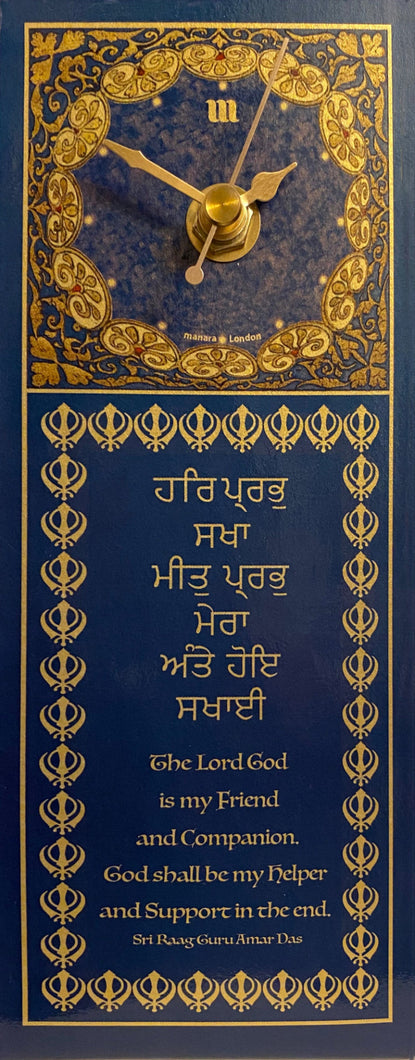 m
manara London
ਹਰਿ ਪ੍ਰਰਭੁ
ਸਖਾ
ਮੀਤੁ ਪ੍ਰਰਭੁ
ਮੇਰਾ
ਅੰਤੇ ਹੋਇ
ਸਖਾਈ
The Lord God
is my Friend
and Companion.
God shall be my Helper
and Support in the end.
Sri Raag Guru Amar Das